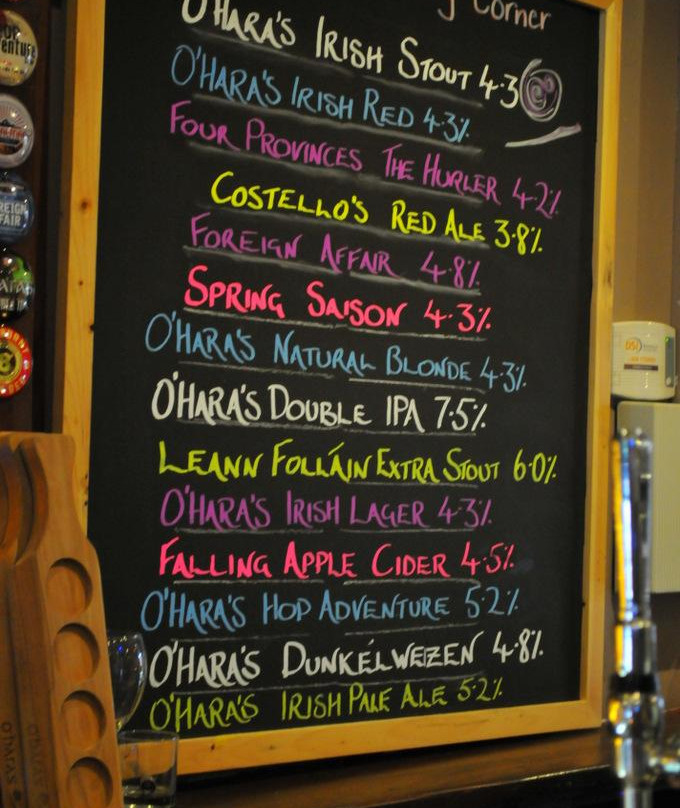 Corner
O'HARA'S IRISH STOUT 4.3
O'HARA'S IRISH RED 4.3%
FOUR PROVINCES THE HURLER 4.2%
COSTELLO'S RED ALE 3.8%
FOREIGN AFFAIR 4.8%
SPRING SAISON 4.3%
O'HARA'S NATURAL BLONDE 4.3%
O'HARA'S DOUBLE IPA 7.5%
LEANN FOLLÁIN EXTRA STOUT 6.0%
O'HARA'S IRISH LAGER 4.3%
FALLING APPLE CIDER 4.5%
O'HARA'S HOP ADVENTURE 5.2%
O'HARA'S DUNKELWEIZEN 4.8%
O'HARA'S IRISH PALE ALE 5.2%
O'HARAS